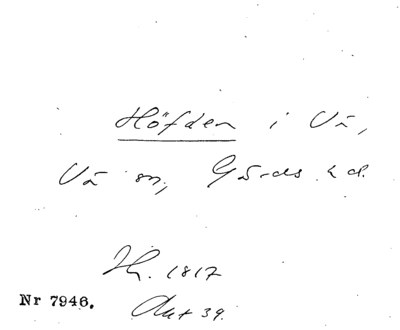 Höfden i Vä,
Vä sn, Gärds hd.
Ih. 1817
Akt 39.
Nr 7946.